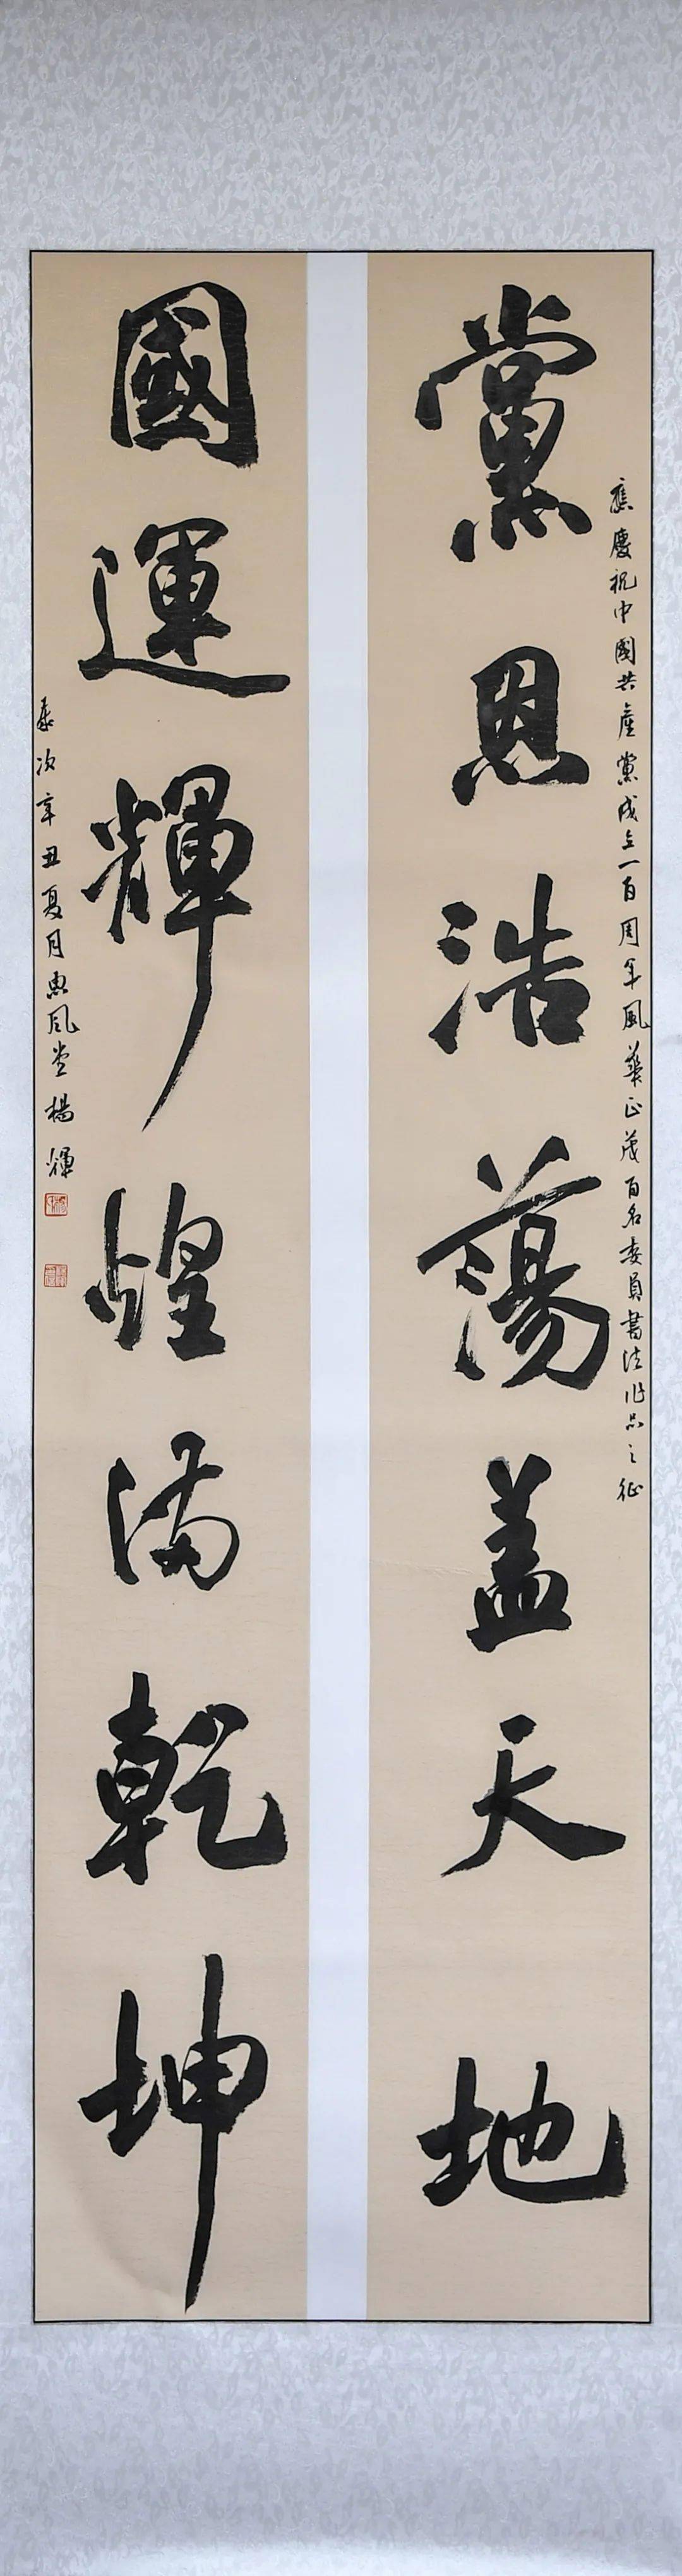 應慶祝中國共產黨成立一百周年風華正茂百名委員書法作品之征
黨恩浩蕩蓋天地
國運輝煌滿乾坤
歲次辛丑夏月惠風堂楊輝